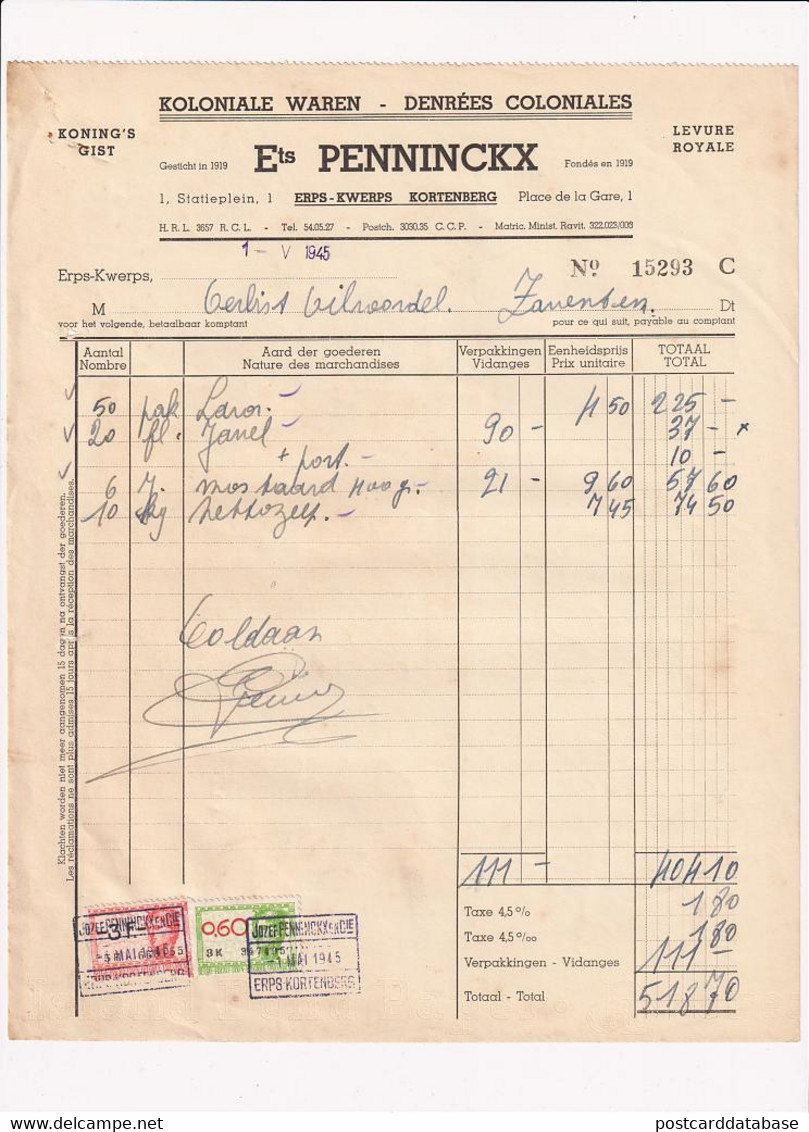 KOLONIALE WAREN - DENRÉES COLONIALES
KONING'S GIST
LEVURE ROYALE
Gesticht in 1919 Ets PENNINCKX Fondés en 1919
1, Statieplein, 1 ERPS-KWERPS KORTENBERG Place de la Gare, 1
H. R. L. 3657 R. C. L. - Tel. 54.05.27 - Postch. 3030.35 C. C. P. - Matric. Minist. Ravit. 322.023/003
1 - V 1945
Erps-Kwerps, No 15293 C
M Verlist Vilvoordel. Zaventem. Dt
voor het volgende, betaalbaar komptant pour ce qui suit, payable au comptant
Aantal Aard der goederen Verpakkingen Eenheidsprijs TOTAAL
Nombre Nature des marchandises Vidanges Prix unitaire TOTAL
50 pak 4 50 225 -
20 fl. Javel 90 - 37 - x
+ port. - 10 -
6 mostaard 400 g. - 21 - 9 60 57 60
10 kg 7 45 74 50
Klachten worden niet meer aangenomen 15 dagen na ontvangst der goederen.
Les réclamations ne sont plus admises 15 jours après la réception des marchandises.
Voldaan
111 - 404 10
Taxe 4,5 % 1 80
Taxe 4,5 ‰ 1 80
Verpakkingen - Vidanges 111 -
Totaal - Total 518 70
3F
JOZEF PENNINCKX EN CIE
-1 MAI 1945
ERPS-KORTENBERG
0,60
3K
JOZEF PENNINCKX EN CIE
-1 MAI 1945
ERPS-KORTENBERG
postcarddatabase
delcampe.net